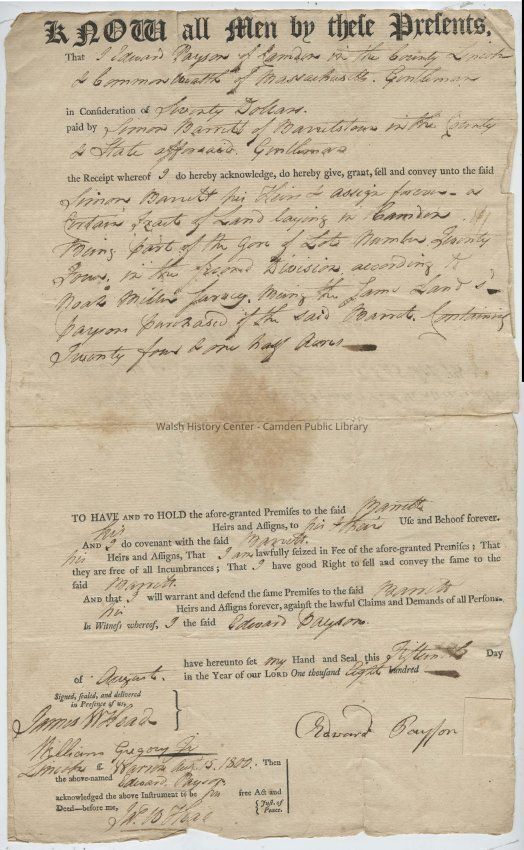 KNOW all Men by these Presents,
That I Edward Payson of Camden in the County Lincoln
& Commonwealth of Massachusetts. Gentleman
in Consideration of Seventy Dollars.
paid by Simon Barrett of Barrettstown in the County
& State aforesaid. Gentleman
the Receipt whereof I do hereby acknowledge, do hereby give, grant, sell and convey unto the said
Simon Barrett his Heirs & assigns forever a
Certain Tract of Land laying in Camden
Being part of the Gore of Lots Number Twenty
Four. in the Second Division according to
Noah Miller Survey. Being the Same Land sd
Payson Purchased of the said Barrett. Containing
Twenty four & one half Acres
Walsh History Center - Camden Public Library
TO HAVE AND TO HOLD the afore-granted Premises to the said Barrett
his Heirs and Assigns, to his & their Use and Behoof forever.
AND I do covenant with the said Barrett.
his Heirs and Assigns, That I am lawfully seized in Fee of the afore-granted Premises; That
they are free of all Incumbrances; That I have good Right to sell and convey the same to the
said Barrett
And that I will warrant and defend the same Premises to the said Barrett
his Heirs and Assigns forever, against the lawful Claims and Demands of all Persons.
In Witness whereof, I the said Edward Payson.
have hereunto set my Hand and Seal this Fifteenth Day
of August. in the Year of our LORD One thousand Eight hundred
Signed, sealed, and delivered
in Presence of us,
James W Head
William Gregory Jr
Edward Payson
Lincoln ss Warren Augt 15. 1800. Then
the above-named Edward Payson
acknowledged the above Instrument to be his free Act and
Deed—before me, Just. of
Peace.